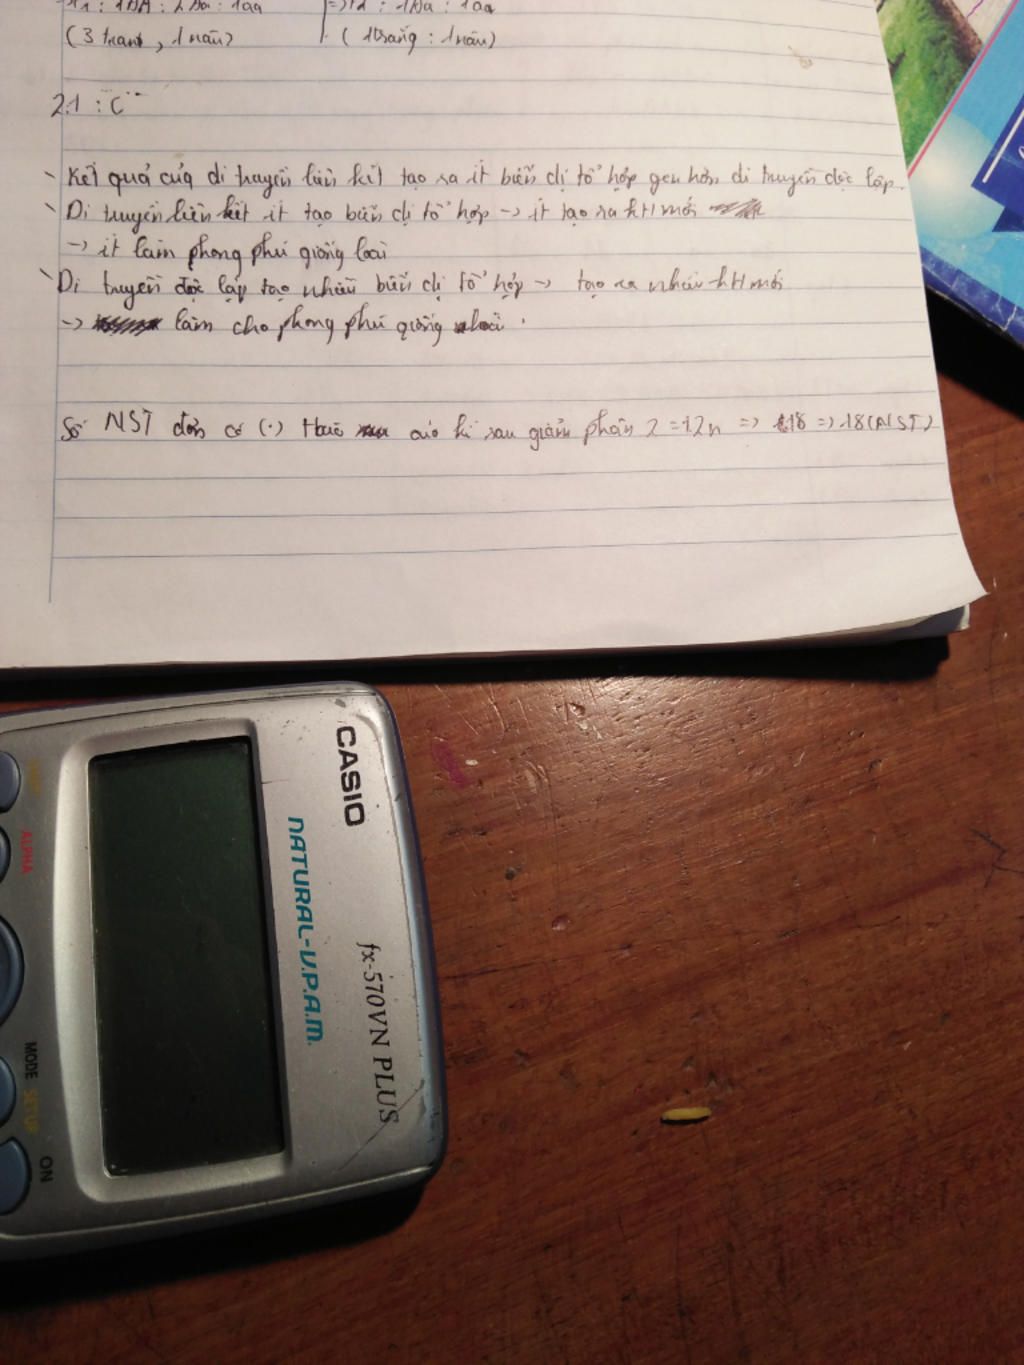 (3 trắng, 1 nâu) (1 trắng : 1 nâu)
2.1 : C
Kết quả của di truyền liên kết tạo ra ít biến dị tổ hợp gen hơn di truyền độc lập.
Di truyền liên kết ít tạo biến dị tổ hợp -> ít tạo ra kH mới
-> ít làm phong phú giống loài
Di truyền độc lập tạo nhiều biến dị tổ hợp -> tạo ra nhiều kH mới
-> làm cho phong phú giống loài.
Số NST đơn có (.) vào kì sau giảm phân 2 = 1.2n => 18 => 18 (NST)
CASIO
NATURAL-V.P.A.M.
fx-570VN PLUS
ALPHA
MODE SETUP
ON